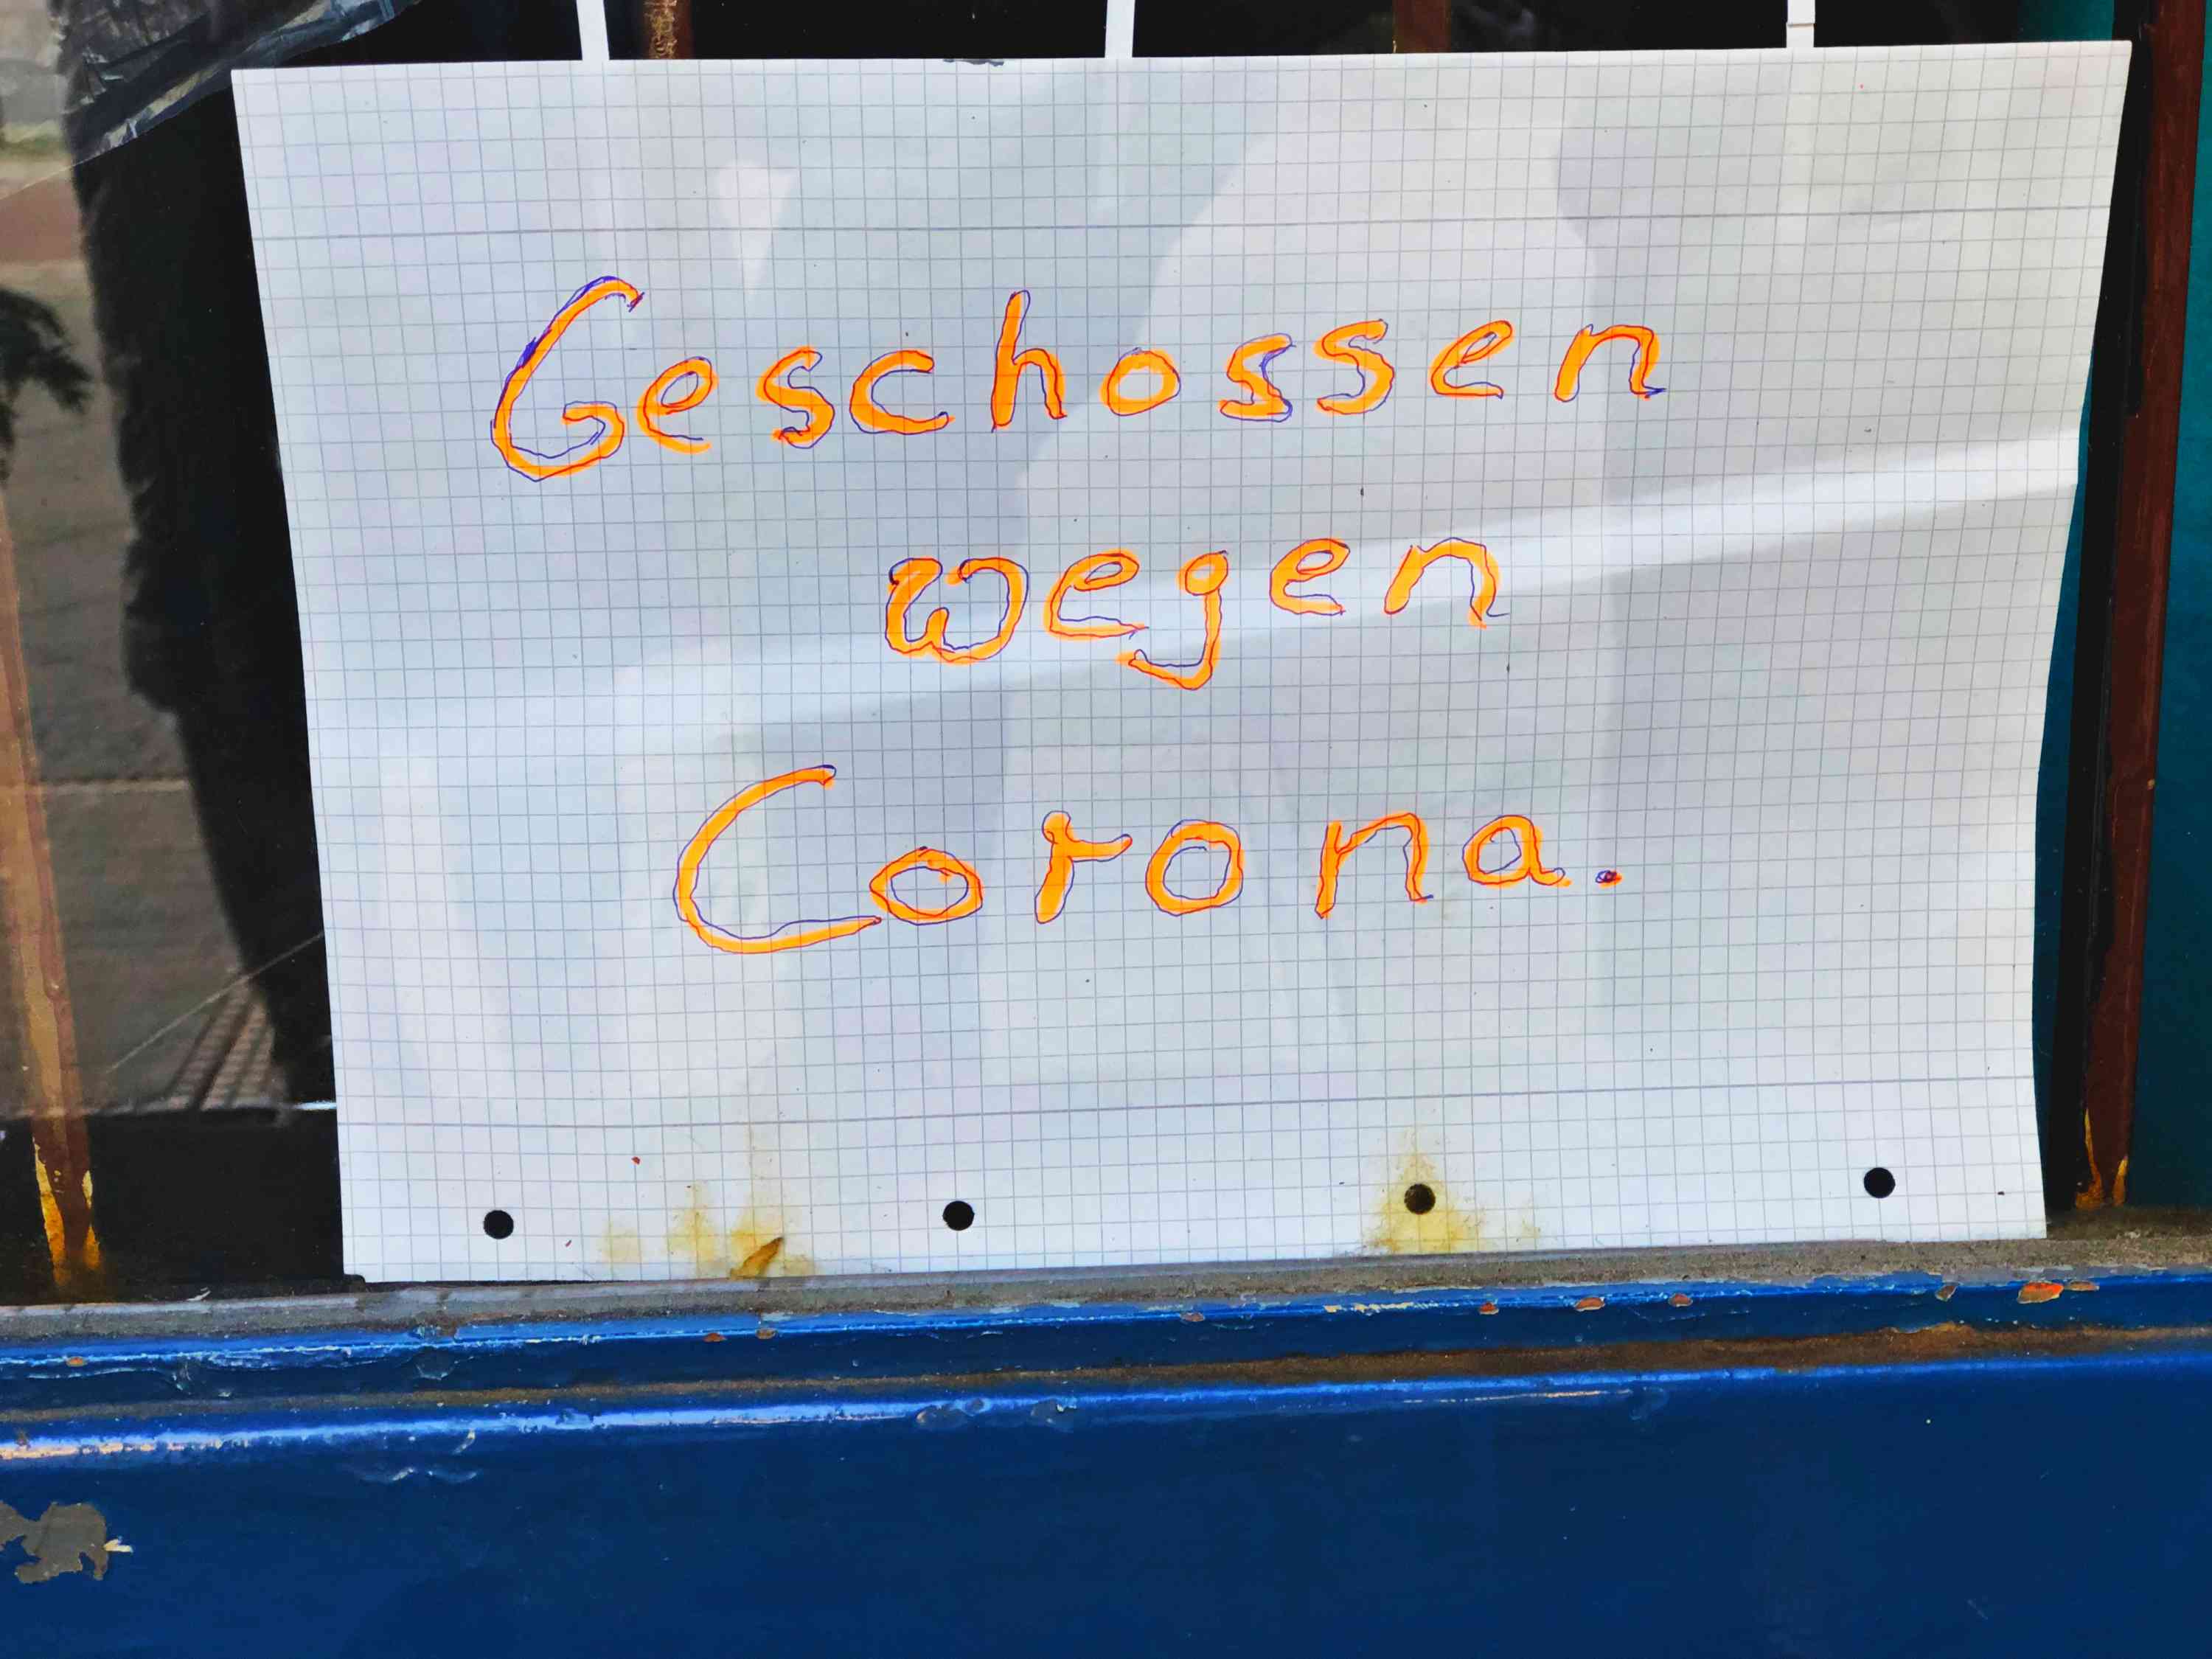 Geschossen
wegen
Corona.